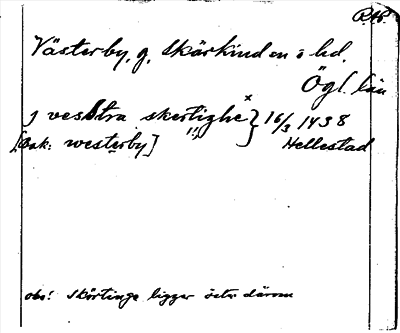 Västerby, g, Skärkind sn o hd.
Ögl. län
J vesstra skertighe x } 16/3 1438
[Bak: westerby] (!) Hellestad
obs! Skörtinge ligger öster därom